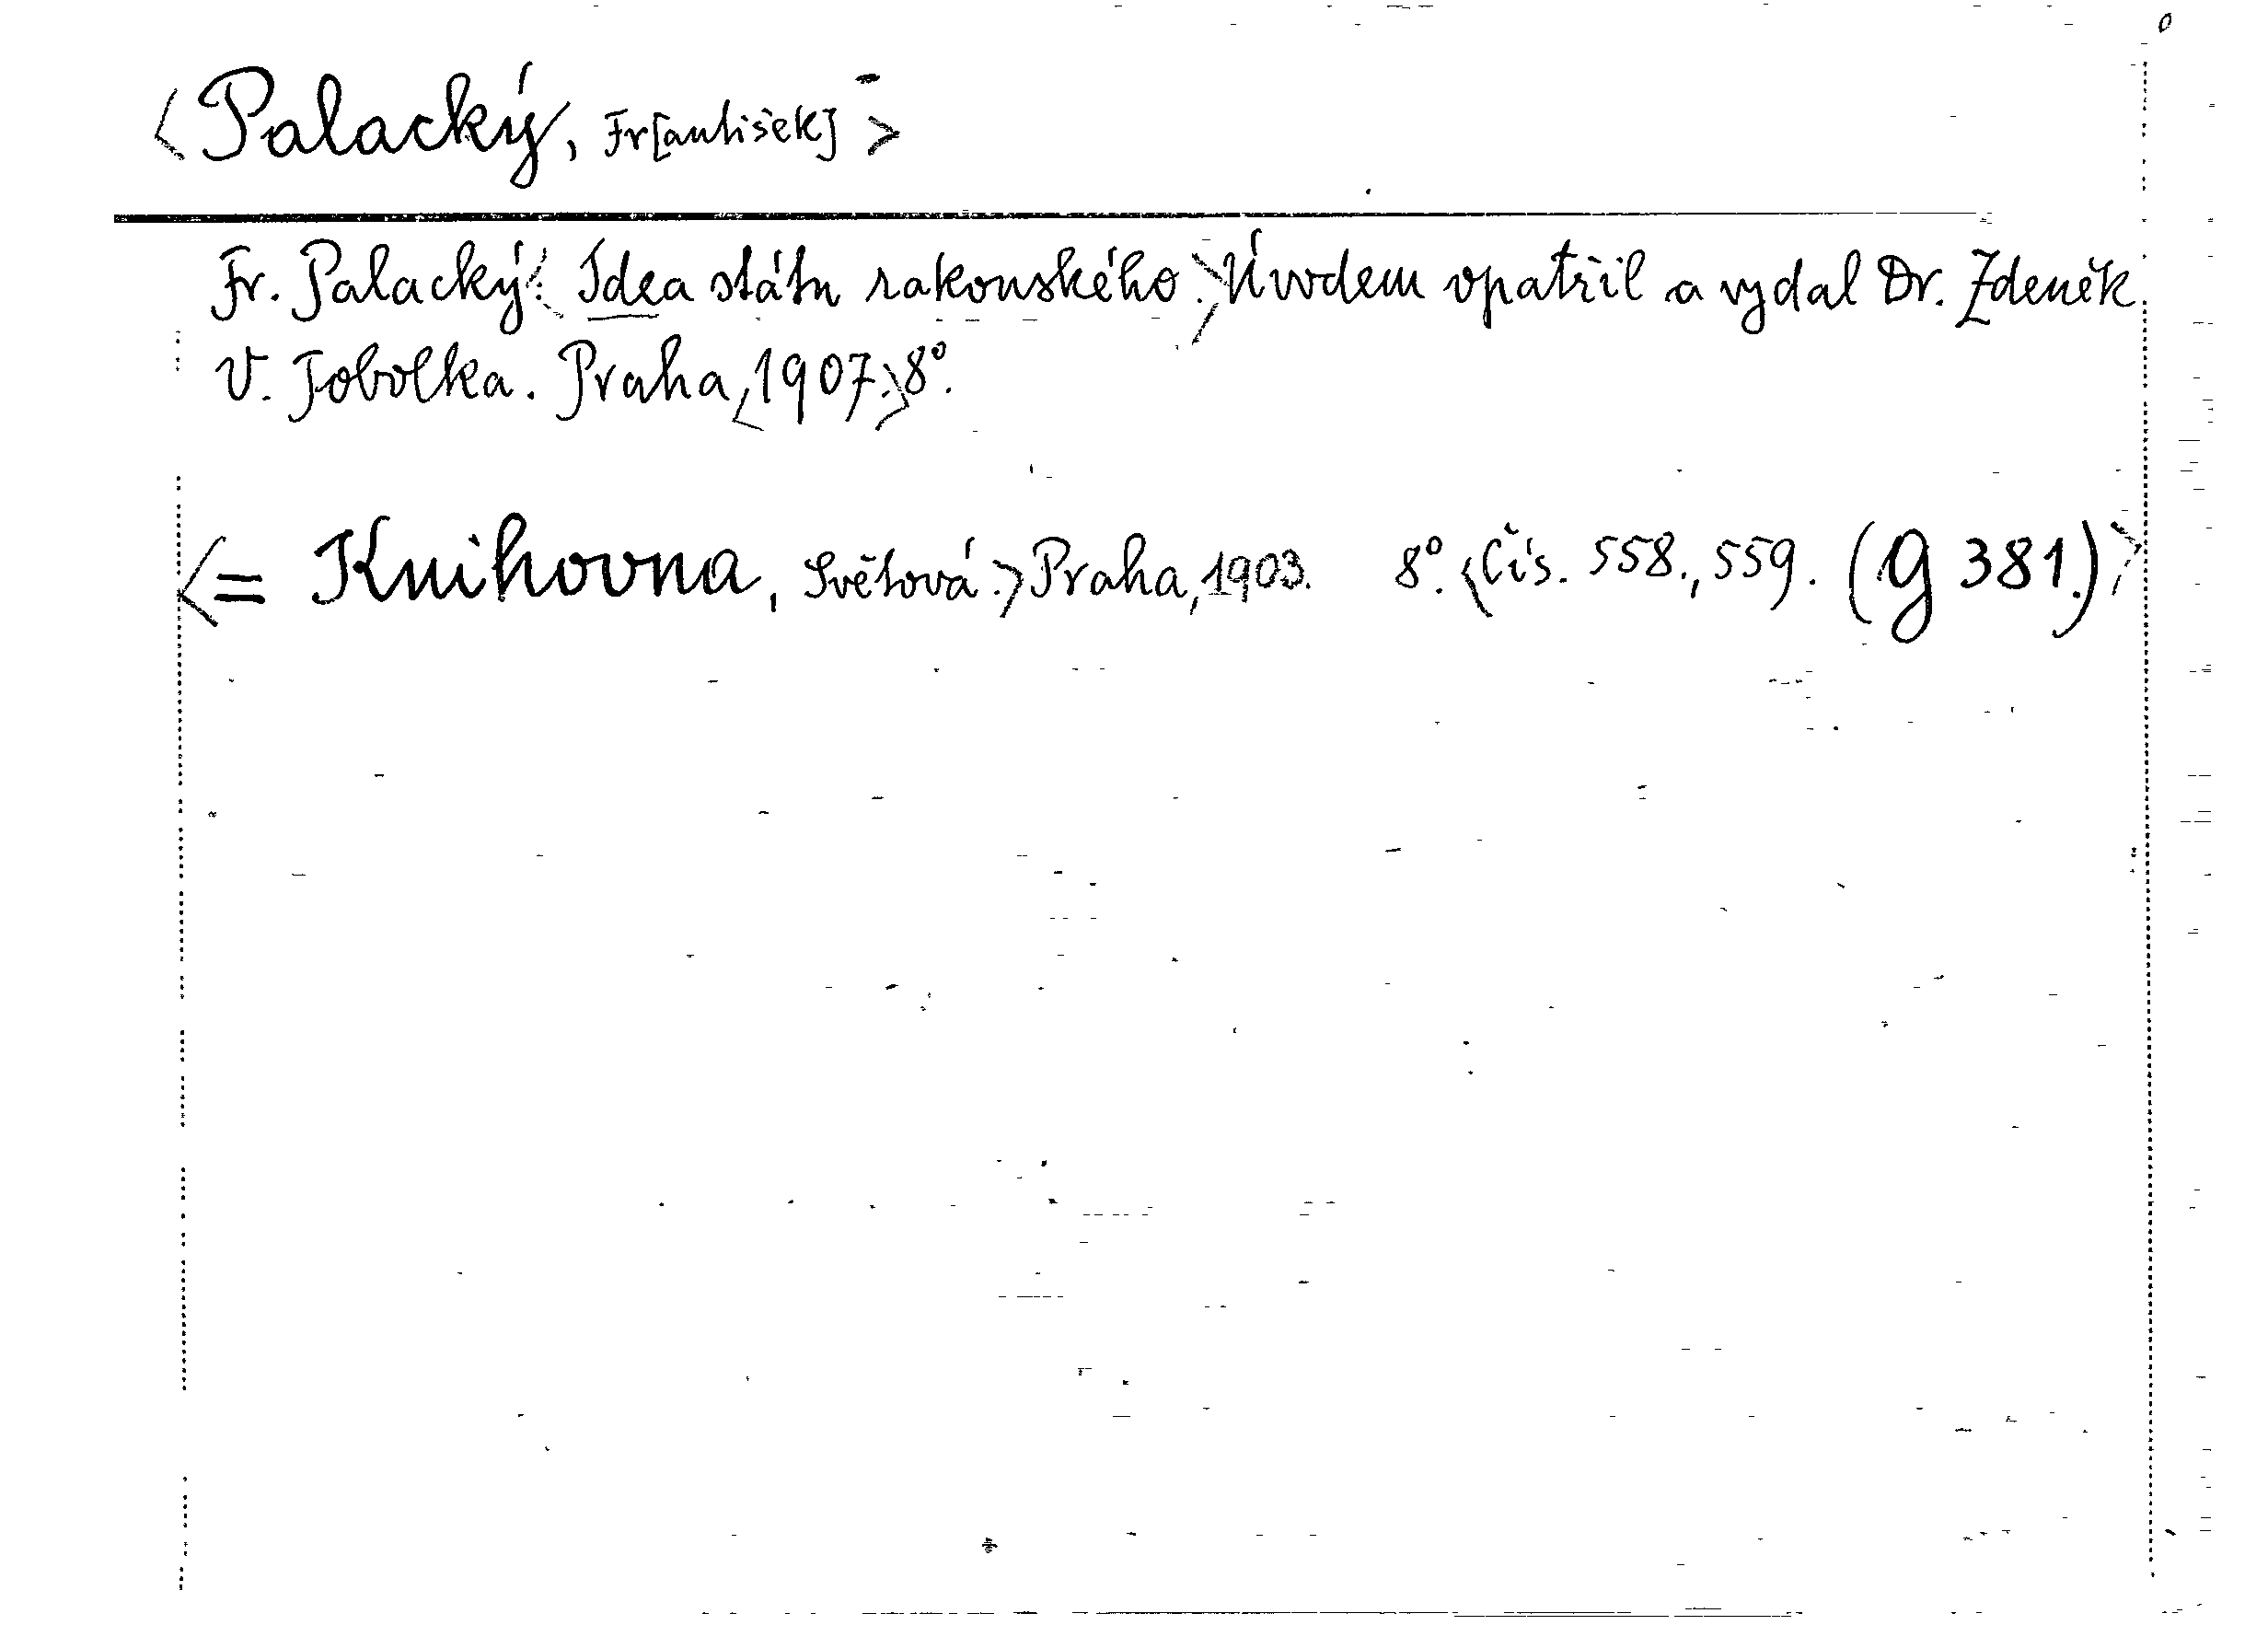 <Palacký, Fr[antišek]>
Fr. Palacký: <Idea státu rakouského.> Úvodem opatřil a vydal Dr. Zdeněk
V. Tobolka. Praha, <1907.> 8°.
<= Knihovna, Světová.> Praha, 1903. 8°. <Čís. 558., 559. (g 381.)>